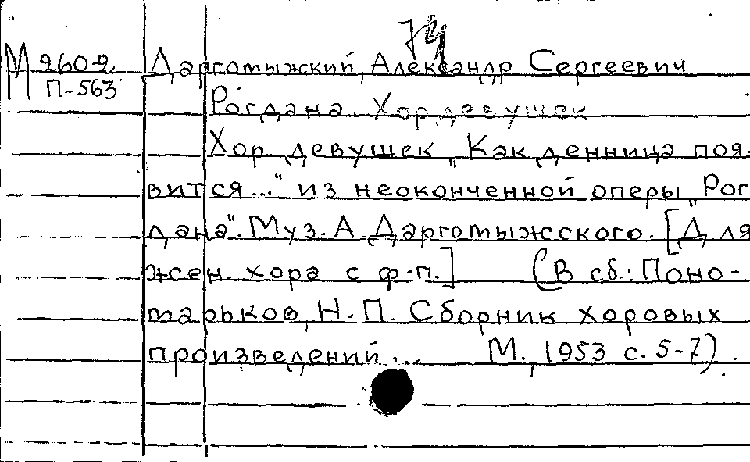 74
М 260-2 Даргомыжский, Александр Сергеевич
П-563
Рогдана. Хор девушек
Хор девушек „Как денница поя-
вится..." из неоконченной оперы „Рог
дана". Муз. А. Даргомыжского. [Для
жен. хора с ф-п.] (В сб.: Поно-
марьков, Н.П. Сборник хоровых
произведений... М., 1953 с. 5-7).